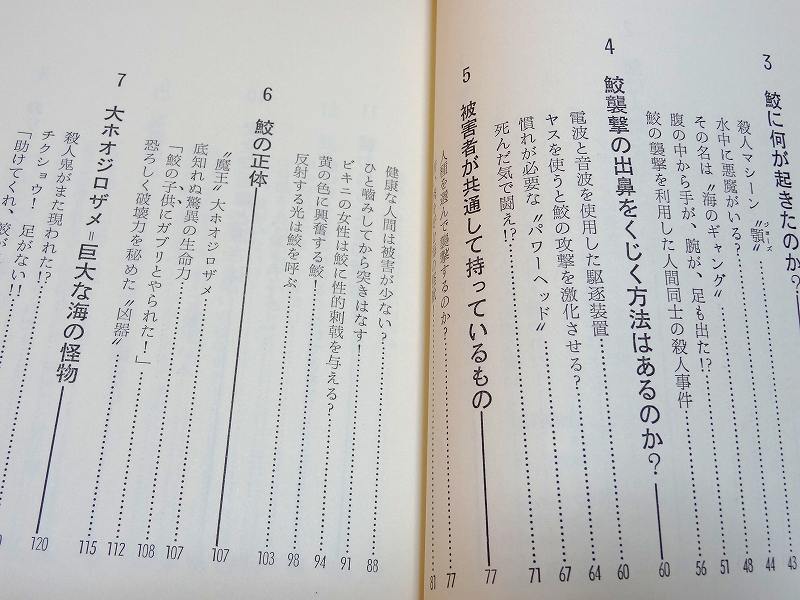 3 鮫に何が起きたのか?
殺人マシーン〝顎〟ジョーズ 43
水中に悪魔がいる? 44
その名は〝海のギャング〟 48
腹の中から手が、腕が、足も出た!? 51
鮫の襲撃を利用した人間同士の殺人事件 56
4 鮫襲撃の出鼻をくじく方法はあるのか? 60
電波と音波を使用した駆逐装置 60
ヤスを使うと鮫の攻撃を激化させる? 64
慣れが必要な〝パワーヘッド〟 67
死んだ気で闘え!? 71
5 被害者が共通して持っているもの 77
人種を選んで襲撃するのか? 77
81
健康な人間は被害が少ない? 88
ひと噛みしてから突きはなす! 91
ビキニの女性は鮫に性的刺戟を与える? 94
黄の色に興奮する鮫! 98
反射する光は鮫を呼ぶ 103
6 鮫の正体 107
〝魔王〟大ホオジロザメ 107
底知れぬ驚異の生命力 108
「鮫の子供にガブリとやられた!」 112
恐ろしく破壊力を秘めた〝凶器〟 115
7 大ホオジロザメ=巨大な海の怪物 120
殺人鬼がまた現われた!?
チクショウ! 足がない!!
「助けてくれ、鮫が